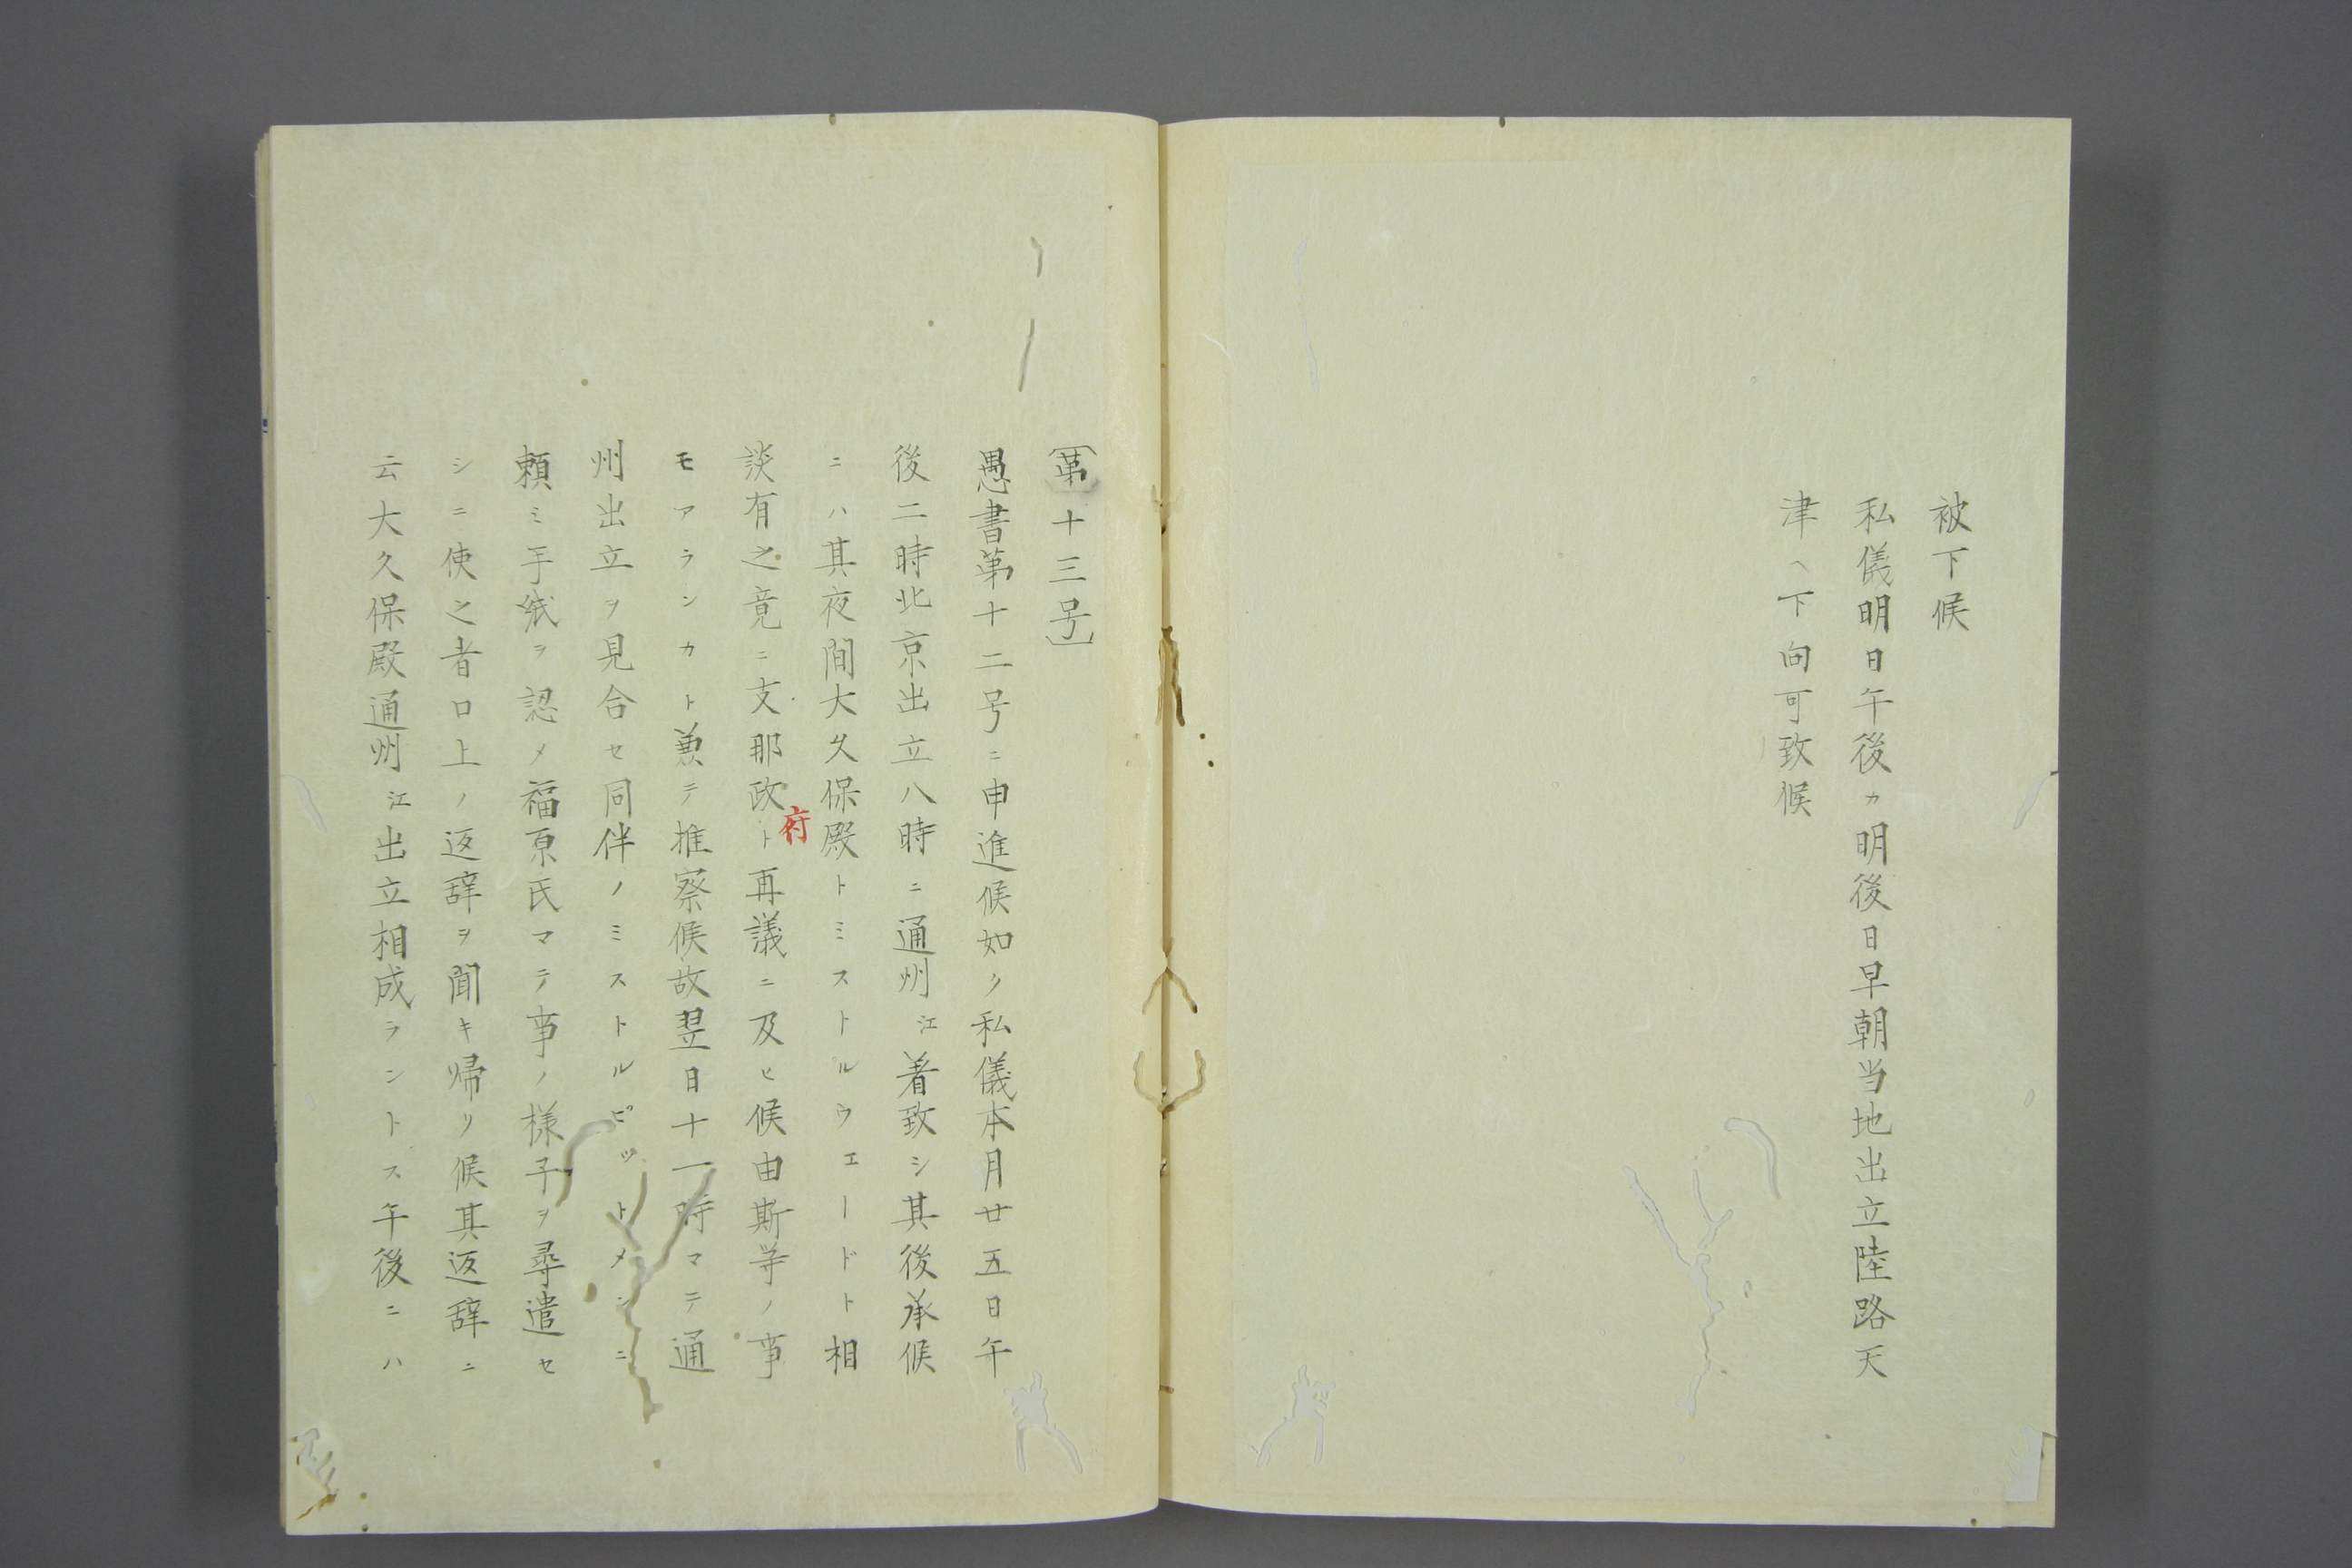 被下候
私儀明日午後カ明後日早朝当地出立陸路天
津ヘ下向可致候
〔第十三号〕
愚書第十二号ニ申進候如ク私儀本月廿五日午
後二時北京出立八時ニ通州江着致シ其後承候
ニハ其夜間大久保殿トミストルウエードト相
談有之竟ニ支那政府ト再議ニ及ヒ候由斯等ノ事
モアランカト兼テ推察候故翌日十一時マテ通
州出立ヲ見合セ同伴ノミストルピットメンニ
頼ミ手紙ヲ認メ福原氏マテ事ノ様子ヲ尋遣セ
シニ使之者口上ノ返辞ヲ聞キ帰リ候其返辞ニ
云大久保殿通州江出立相成ラントス午後ニハ